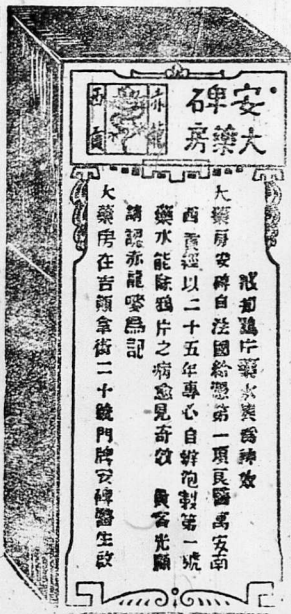 安碑
大藥房
赤龍
西貢
戒却鴉片藥水神效
大藥房安碑自法國給憑第一項良醫寓安南
西貢經以二十五年專心自辦泡製第一號
藥水能除鴉片之病愈見奇效 貴客光顧
請認赤龍嘜爲記
大藥房在吉拿街二十號門牌安碑醫生啟